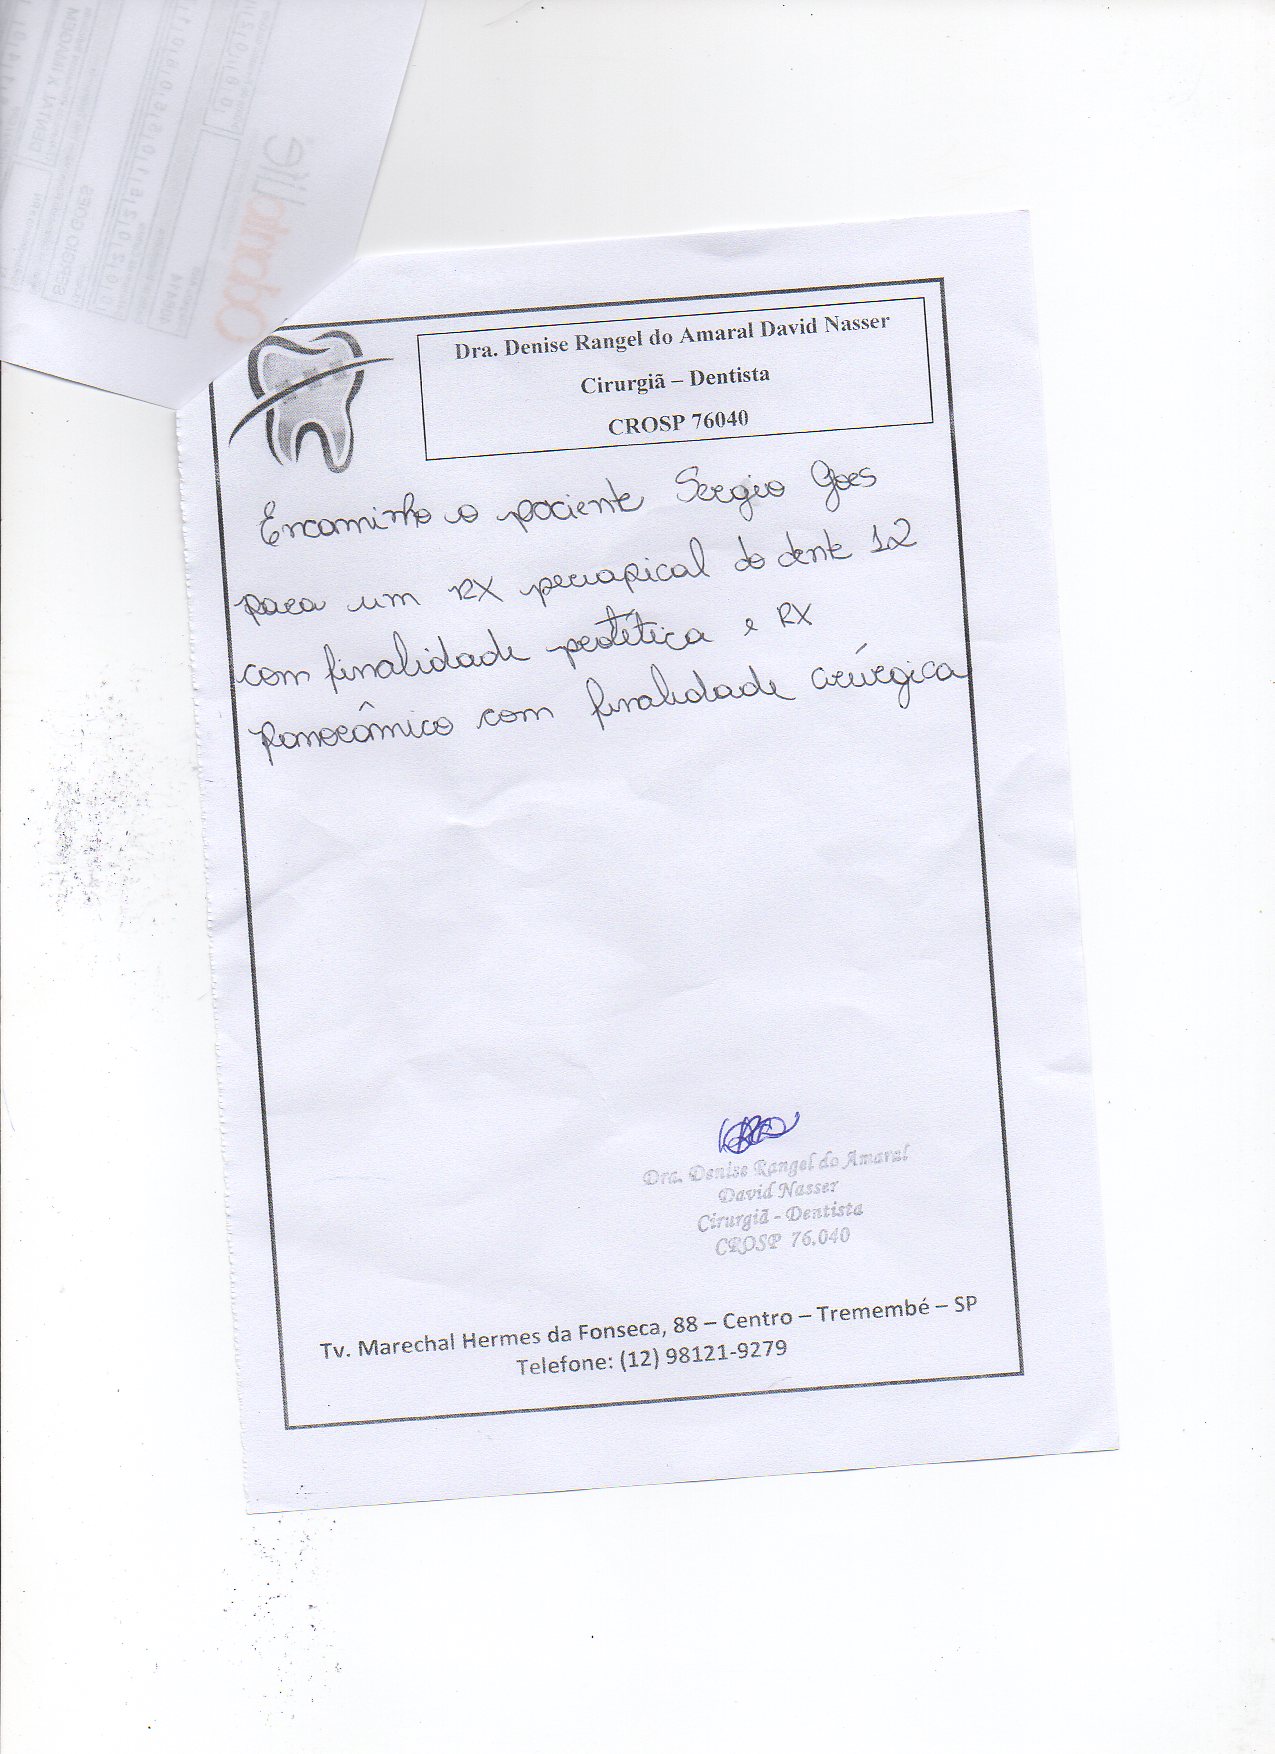 Dra. Denise Rangel do Amaral David Nasser
Cirurgiã – Dentista
CROSP 76040
Encaminho o paciente Sergio Goes
para um RX periapical do dente 12
com finalidade protética e RX
Panorâmico com finalidade cirúrgica
Dra. Denise Rangel do Amaral
David Nasser
Cirurgiã - Dentista
CROSP 76.040
Tv. Marechal Hermes da Fonseca, 88 – Centro – Tremembé – SP
Telefone: (12) 98121-9279
OdontoLife
SERGIO GOES